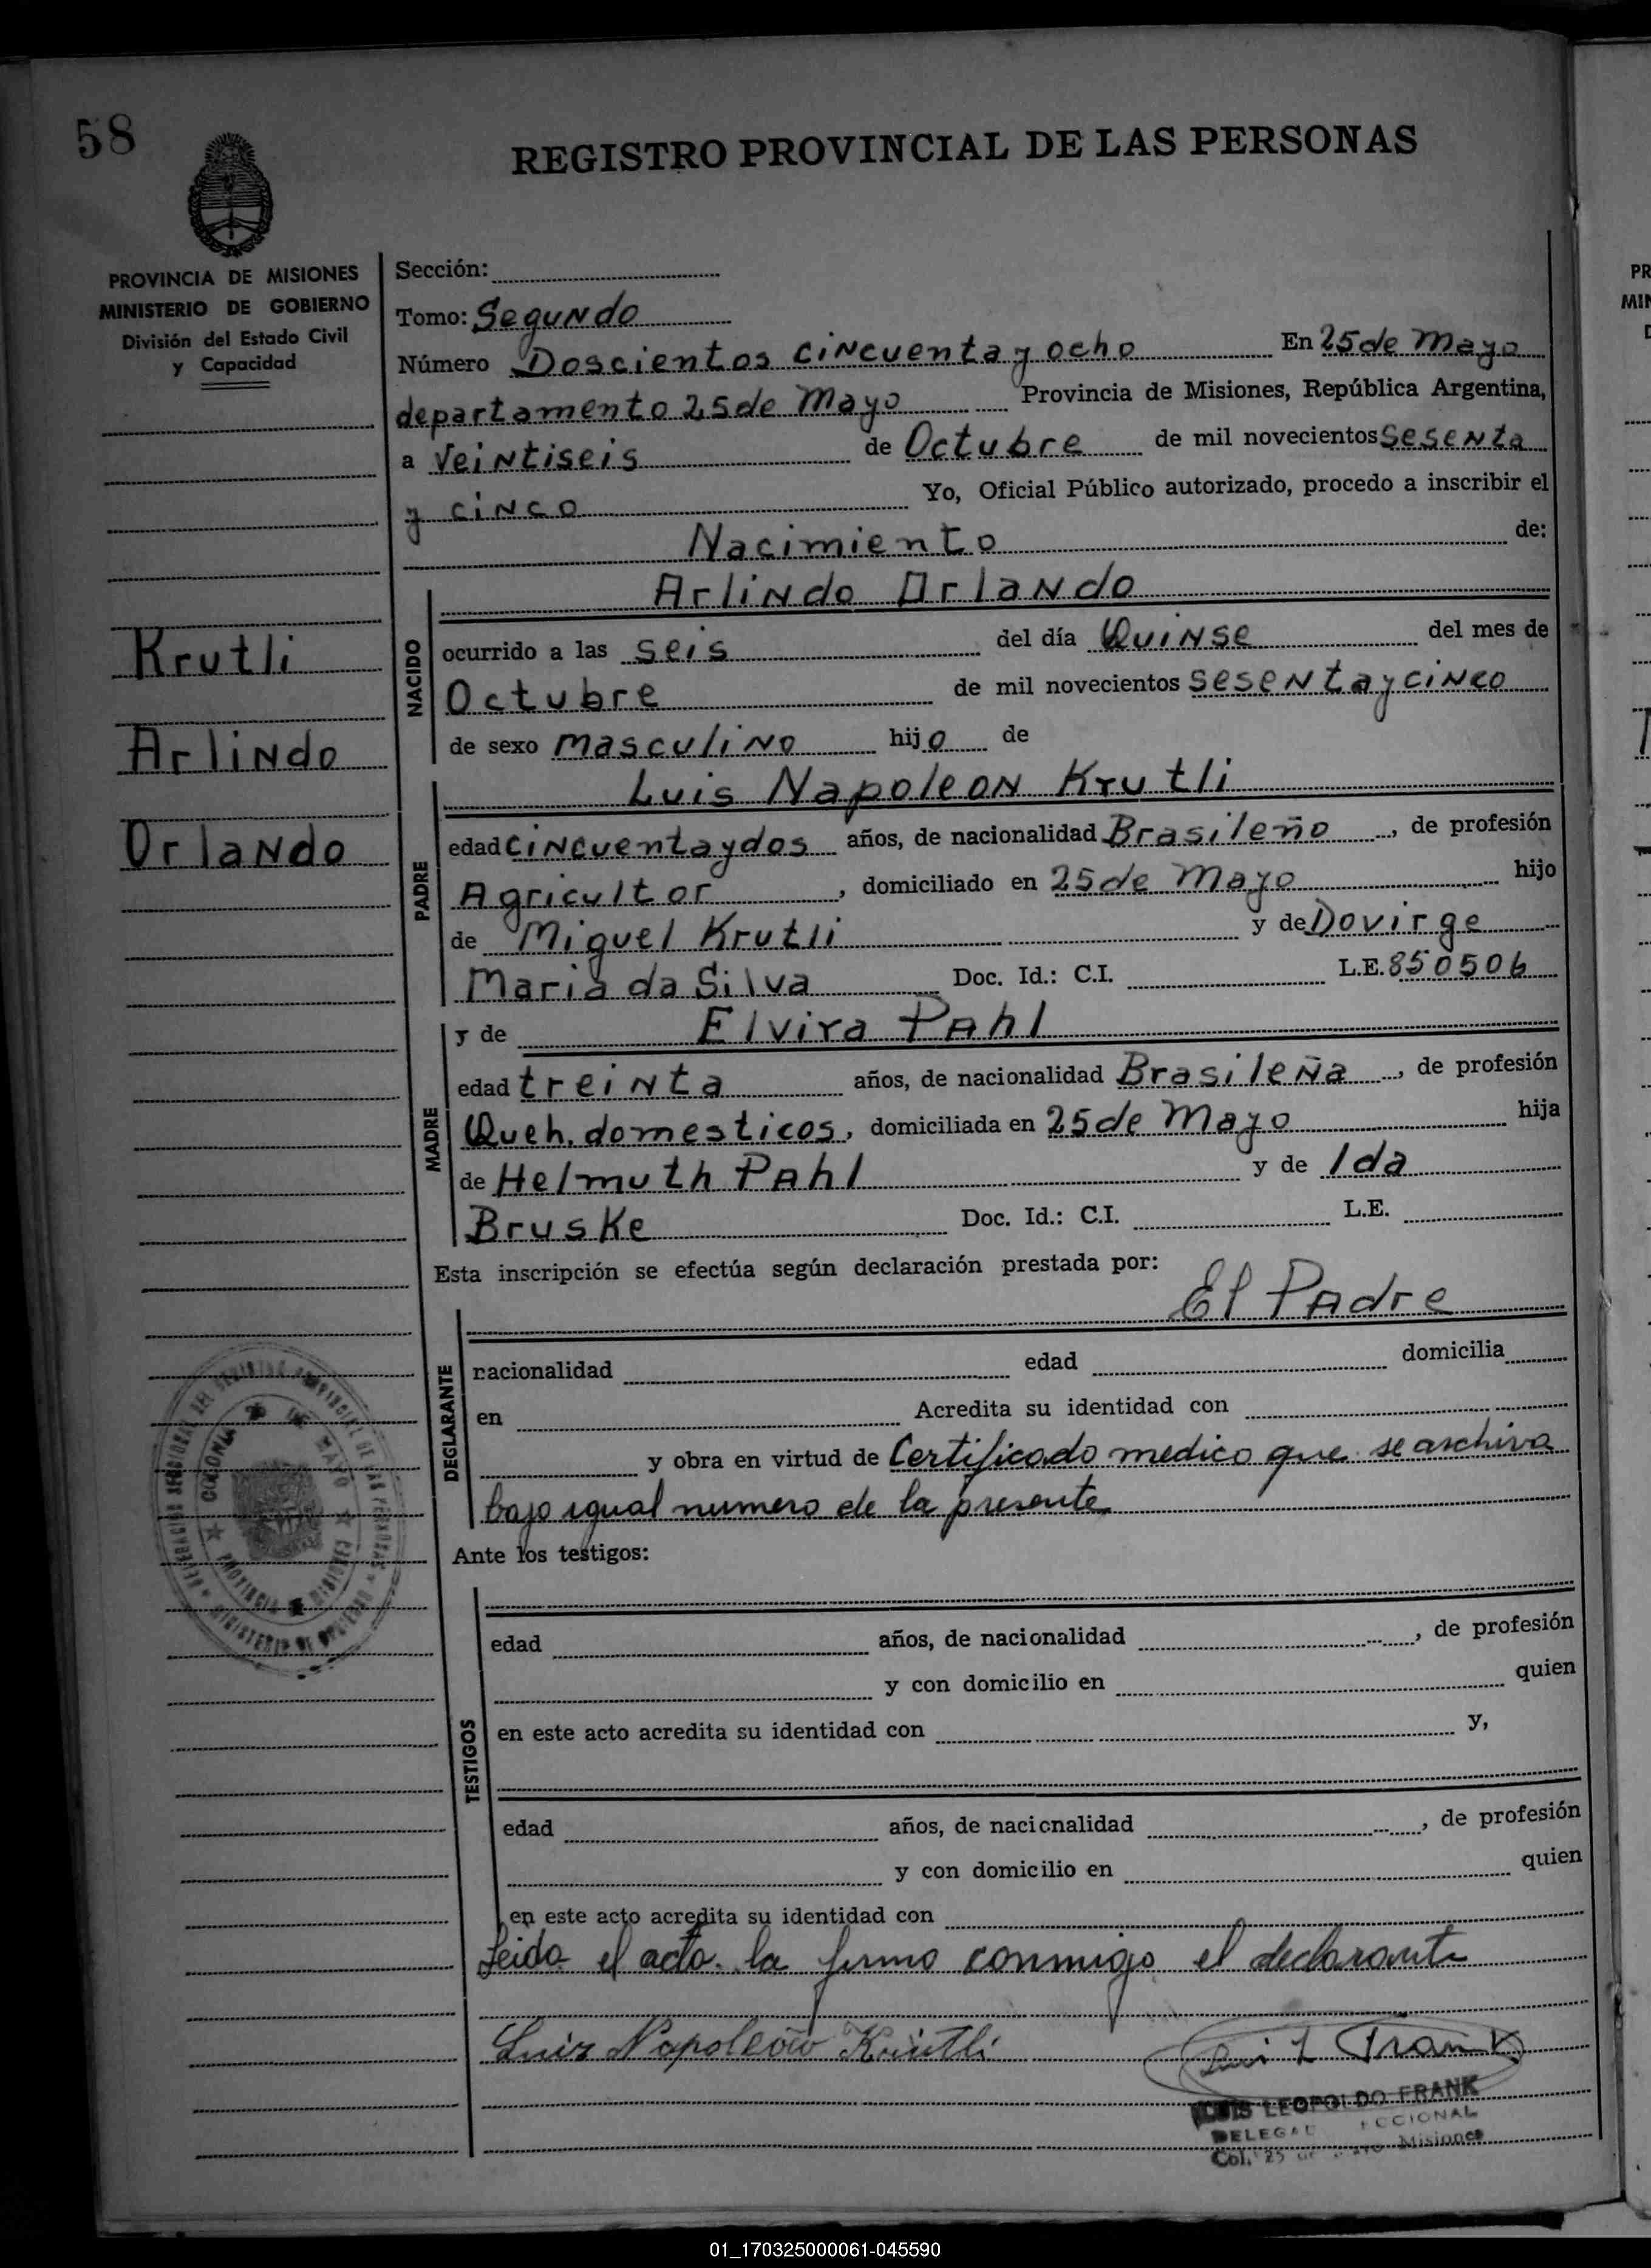 58
REGISTRO PROVINCIAL DE LAS PERSONAS
PROVINCIA DE MISIONES
MINISTERIO DE GOBIERNO
División del Estado Civil
y Capacidad
Krutli
Arlindo
Orlando
Sección:
Tomo: Segundo
Número Doscientos cincuenta y ocho En 25 de Mayo
departamento 25 de Mayo Provincia de Misiones, República Argentina,
a Veintiseis de Octubre de mil novecientos Sesenta
y cinco Yo, Oficial Público autorizado, procedo a inscribir el
Nacimiento de:
Arlindo Orlando
NACIDO
ocurrido a las seis del día Quinse del mes de
Octubre de mil novecientos sesenta y cinco
de sexo masculino hijo de
Luis Napoleon Krutli
PADRE
edad cincuenta y dos años, de nacionalidad Brasileño, de profesión
Agricultor, domiciliado en 25 de Mayo hijo
de Miguel Krutli y de Dovirge
Maria da Silva Doc. Id.: C.I. L.E. 850506
y de Elvira Pahl
MADRE
edad treinta años, de nacionalidad Brasileña, de profesión
Queh. domesticos, domiciliada en 25 de Mayo hija
de Helmuth Pahl y de Ida
Bruske Doc. Id.: C.I. L.E.
Esta inscripción se efectúa según declaración prestada por:
El Padre
DECLARANTE
nacionalidad edad domicilia
en Acredita su identidad con
y obra en virtud de Certificado medico que se archiva
bajo igual numero de la presente
Ante los testigos:
TESTIGOS
edad años, de nacionalidad , de profesión
y con domicilio en quien
en este acto acredita su identidad con y,
edad años, de nacionalidad , de profesión
y con domicilio en quien
en este acto acredita su identidad con
Leida el acta la firma conmigo el declarante
Luiz Napoleão Krütli
LUIS LEOPOLDO FRANK
DELEGAD
Col. 25 de Mayo Misiones
COLONIA 25 DE MAYO
PROVINCIA MISIONES
MINISTERIO DE GOBIERNO
PR
MIN
01_170325000061-045590